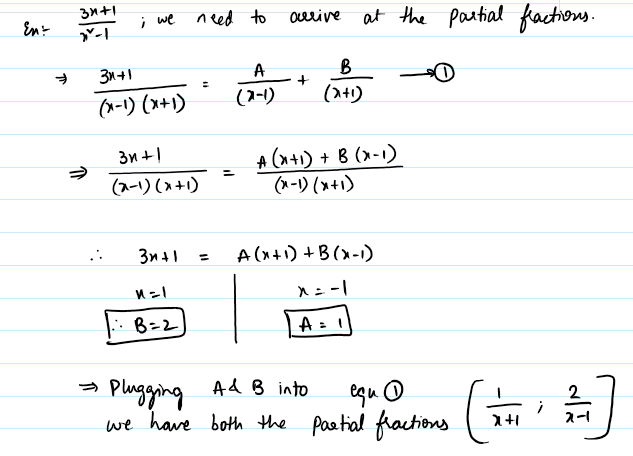 Ex:- (3x+1)/(x²-1) ; we need to arrive at the partial fractions.
⇒ (3x+1)/((x-1)(x+1)) = A/(x-1) + B/(x+1) → ①
⇒ (3x+1)/((x-1)(x+1)) = (A(x+1) + B(x-1))/((x-1)(x+1))
∴ 3x+1 = A(x+1) + B(x-1)
x=1 | x=-1
∴ B=2 | A=1
⇒ Plugging A & B into equ ①
we have both the partial fractions [1/(x+1) ; 2/(x-1)]